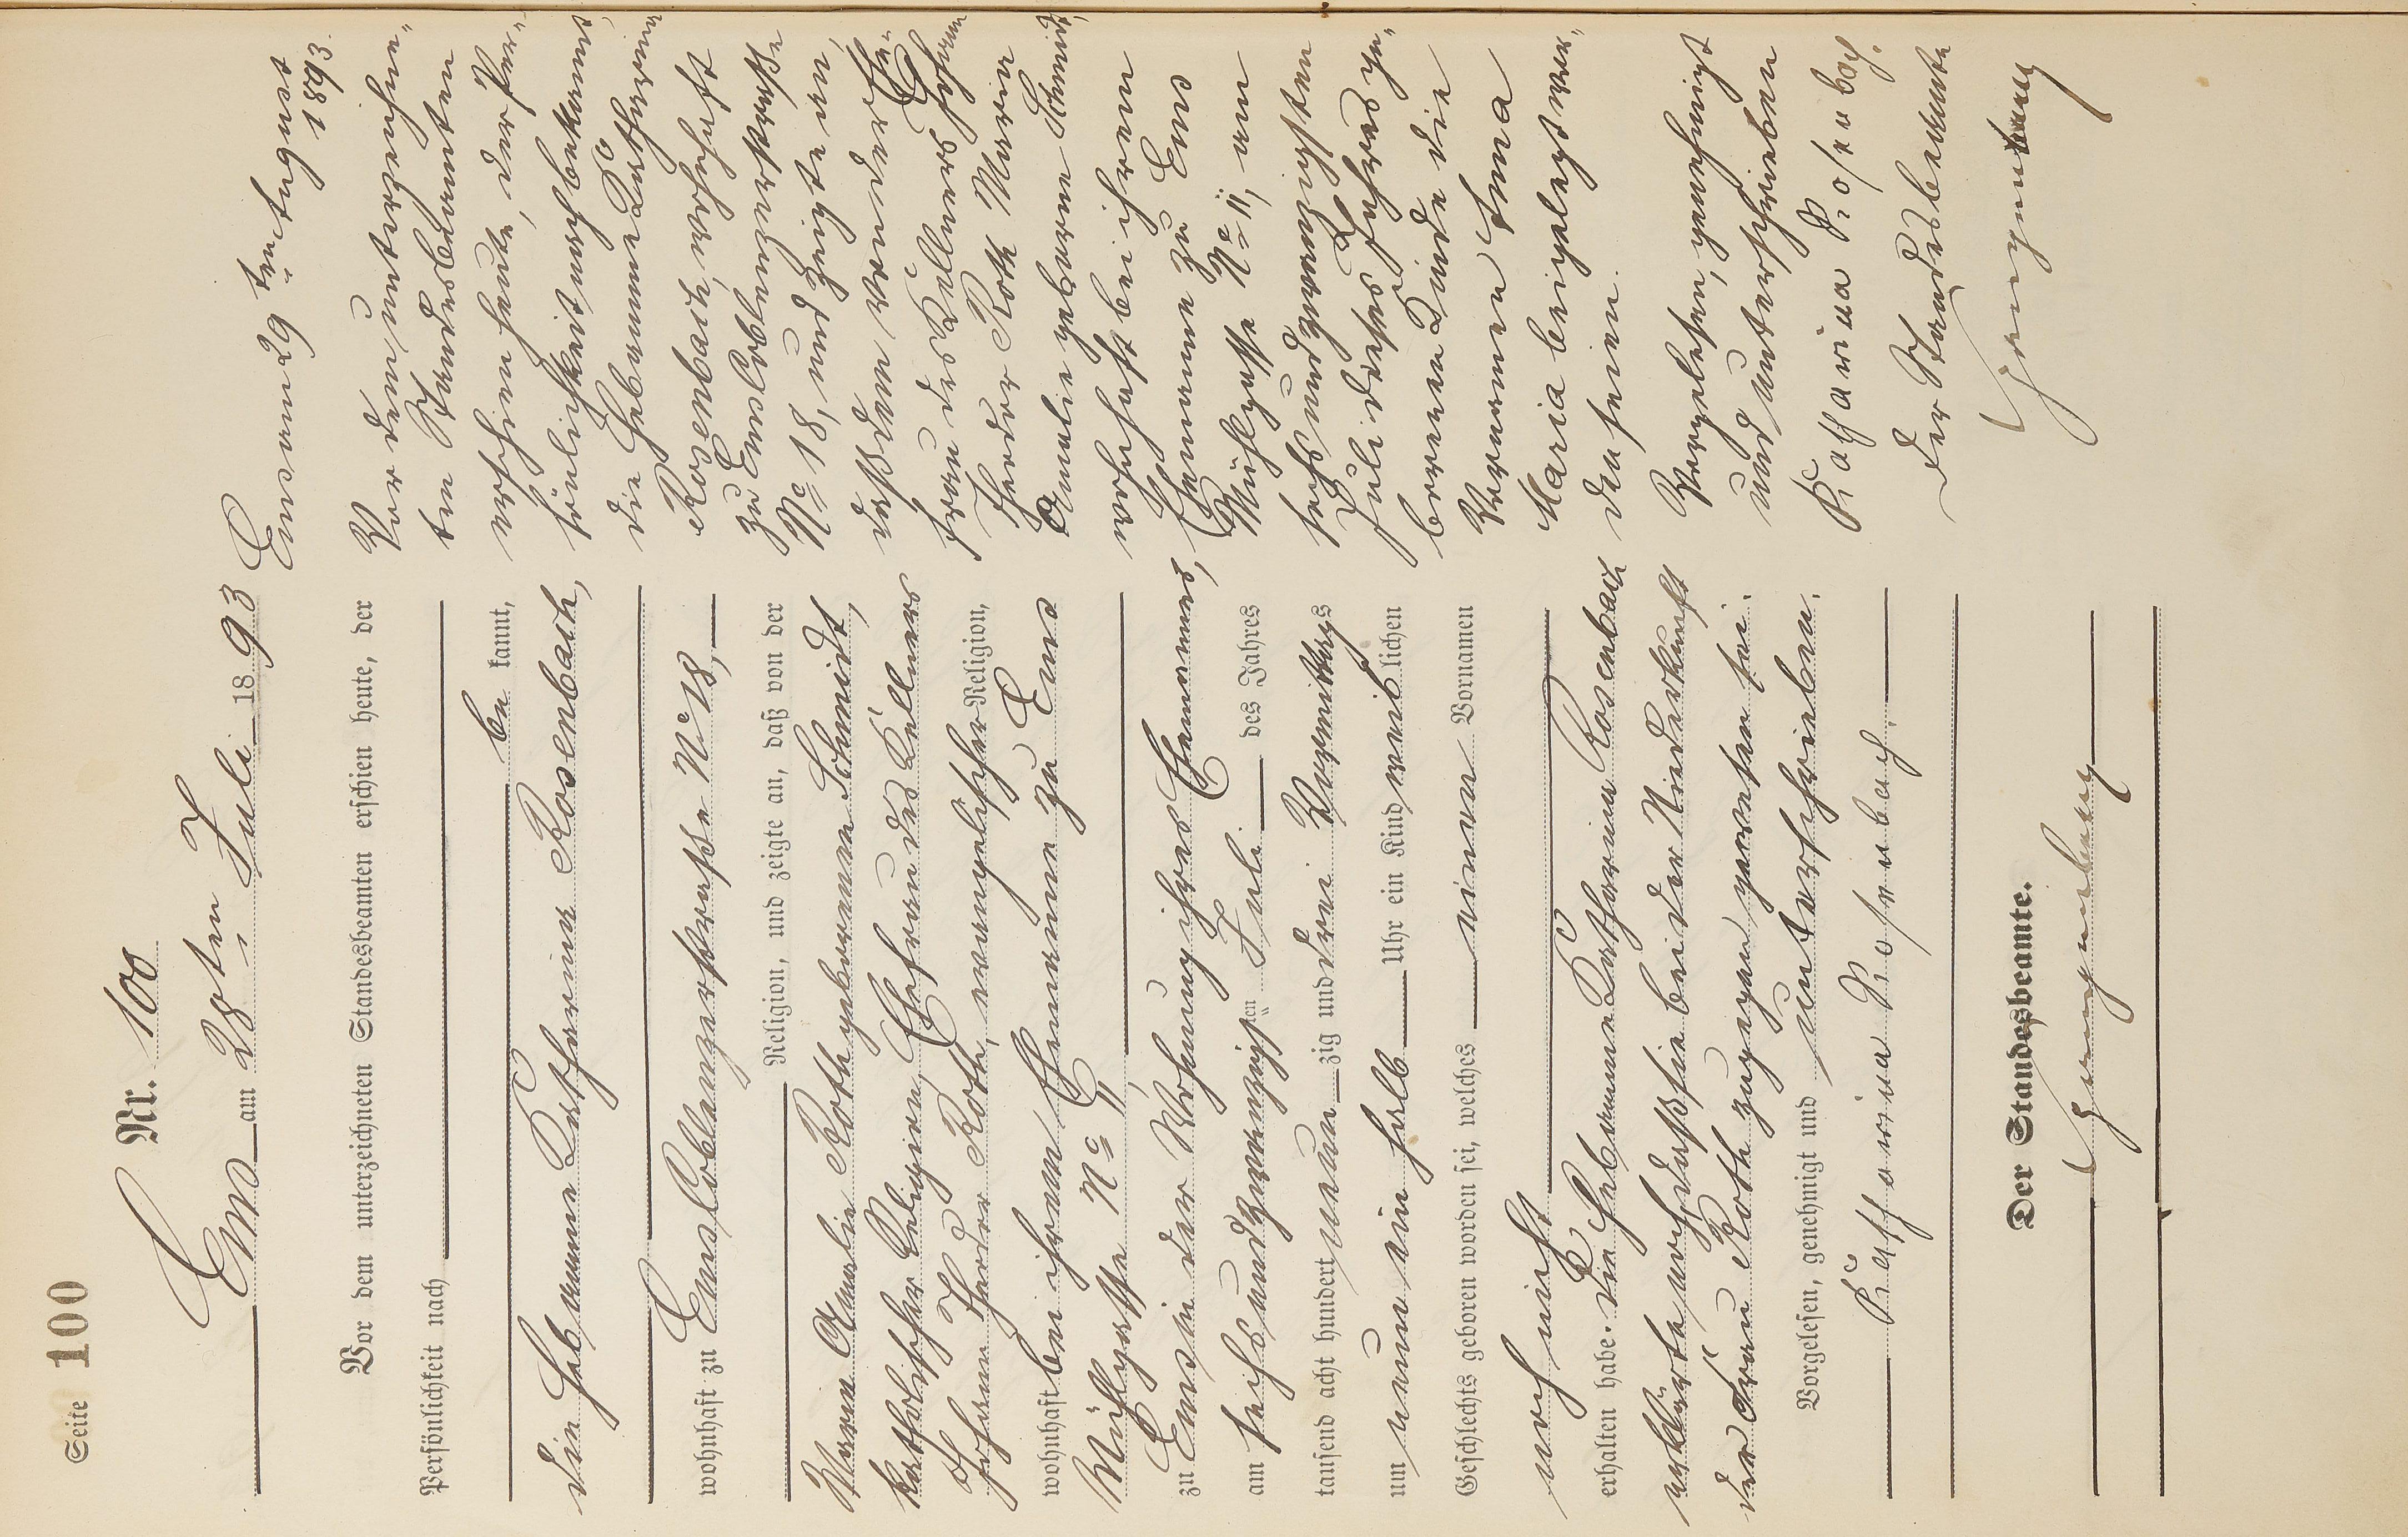 Seite 100
Nr. 100
Ems am 28ten Juli 1893
Vor dem unterzeichneten Standesbeamten erschien heute, der
Persönlichkeit nach
be kannt,
die Hebamme Katharina Rosenbach,
wohnhaft zu Ems Coblenzerstraße No 18,
Religion, und zeigte an, daß von der
Maria Amalie Roth geborenen Schmidt,
katholischer Religion, Ehefrau des Kellners
Johann Theodor Roth, evangelischer Religion,
wohnhaft bei ihrem Ehemanne zu Ems
Mühlgasse No 11,
zu Ems in der Wohnung ihres Ehemannes,
am sechsundzwanzigsten Juli des Jahres
tausend acht hundert neunzig und drei Vormittags
um neun ein halb Uhr ein Kind weiblichen
Geschlechts geboren worden sei, welches einen Vornamen
noch nicht
erhalten habe. Die Hebamme Katharina Rosenbach
erklärte noch, daß sie bei der Niederkunft
der Frau Roth zugegen gewesen sei.
Vorgelesen, genehmigt und unterschrieben.
Katharina Rosenbach.
Der Standesbeamte.
Ems am 29ten August
1893.
Vor dem unterzeichne-
ten Standesbeamten
erschien heute, der Per-
sönlichkeit nach bekannt,
die Hebamme Katharina
Rosenbach, wohnhaft
zu Ems Coblenzerstraße
No 18, und zeigte an,
daß dem von der Ehe-
frau des Kellners Johann
Theodor Roth Maria
Amalie geborene Schmidt,
wohnhaft bei ihrem
Ehemanne zu Ems
Mühlgasse No 11, am
sechsundzwanzigsten
Juli dieses Jahres ge-
borenen Kinde die
Vornamen Anna
Maria beigelegt wor-
den seien.
Vorgelesen, genehmigt
und unterschrieben
Katharina Rosenbach.
Der Standesbeamte